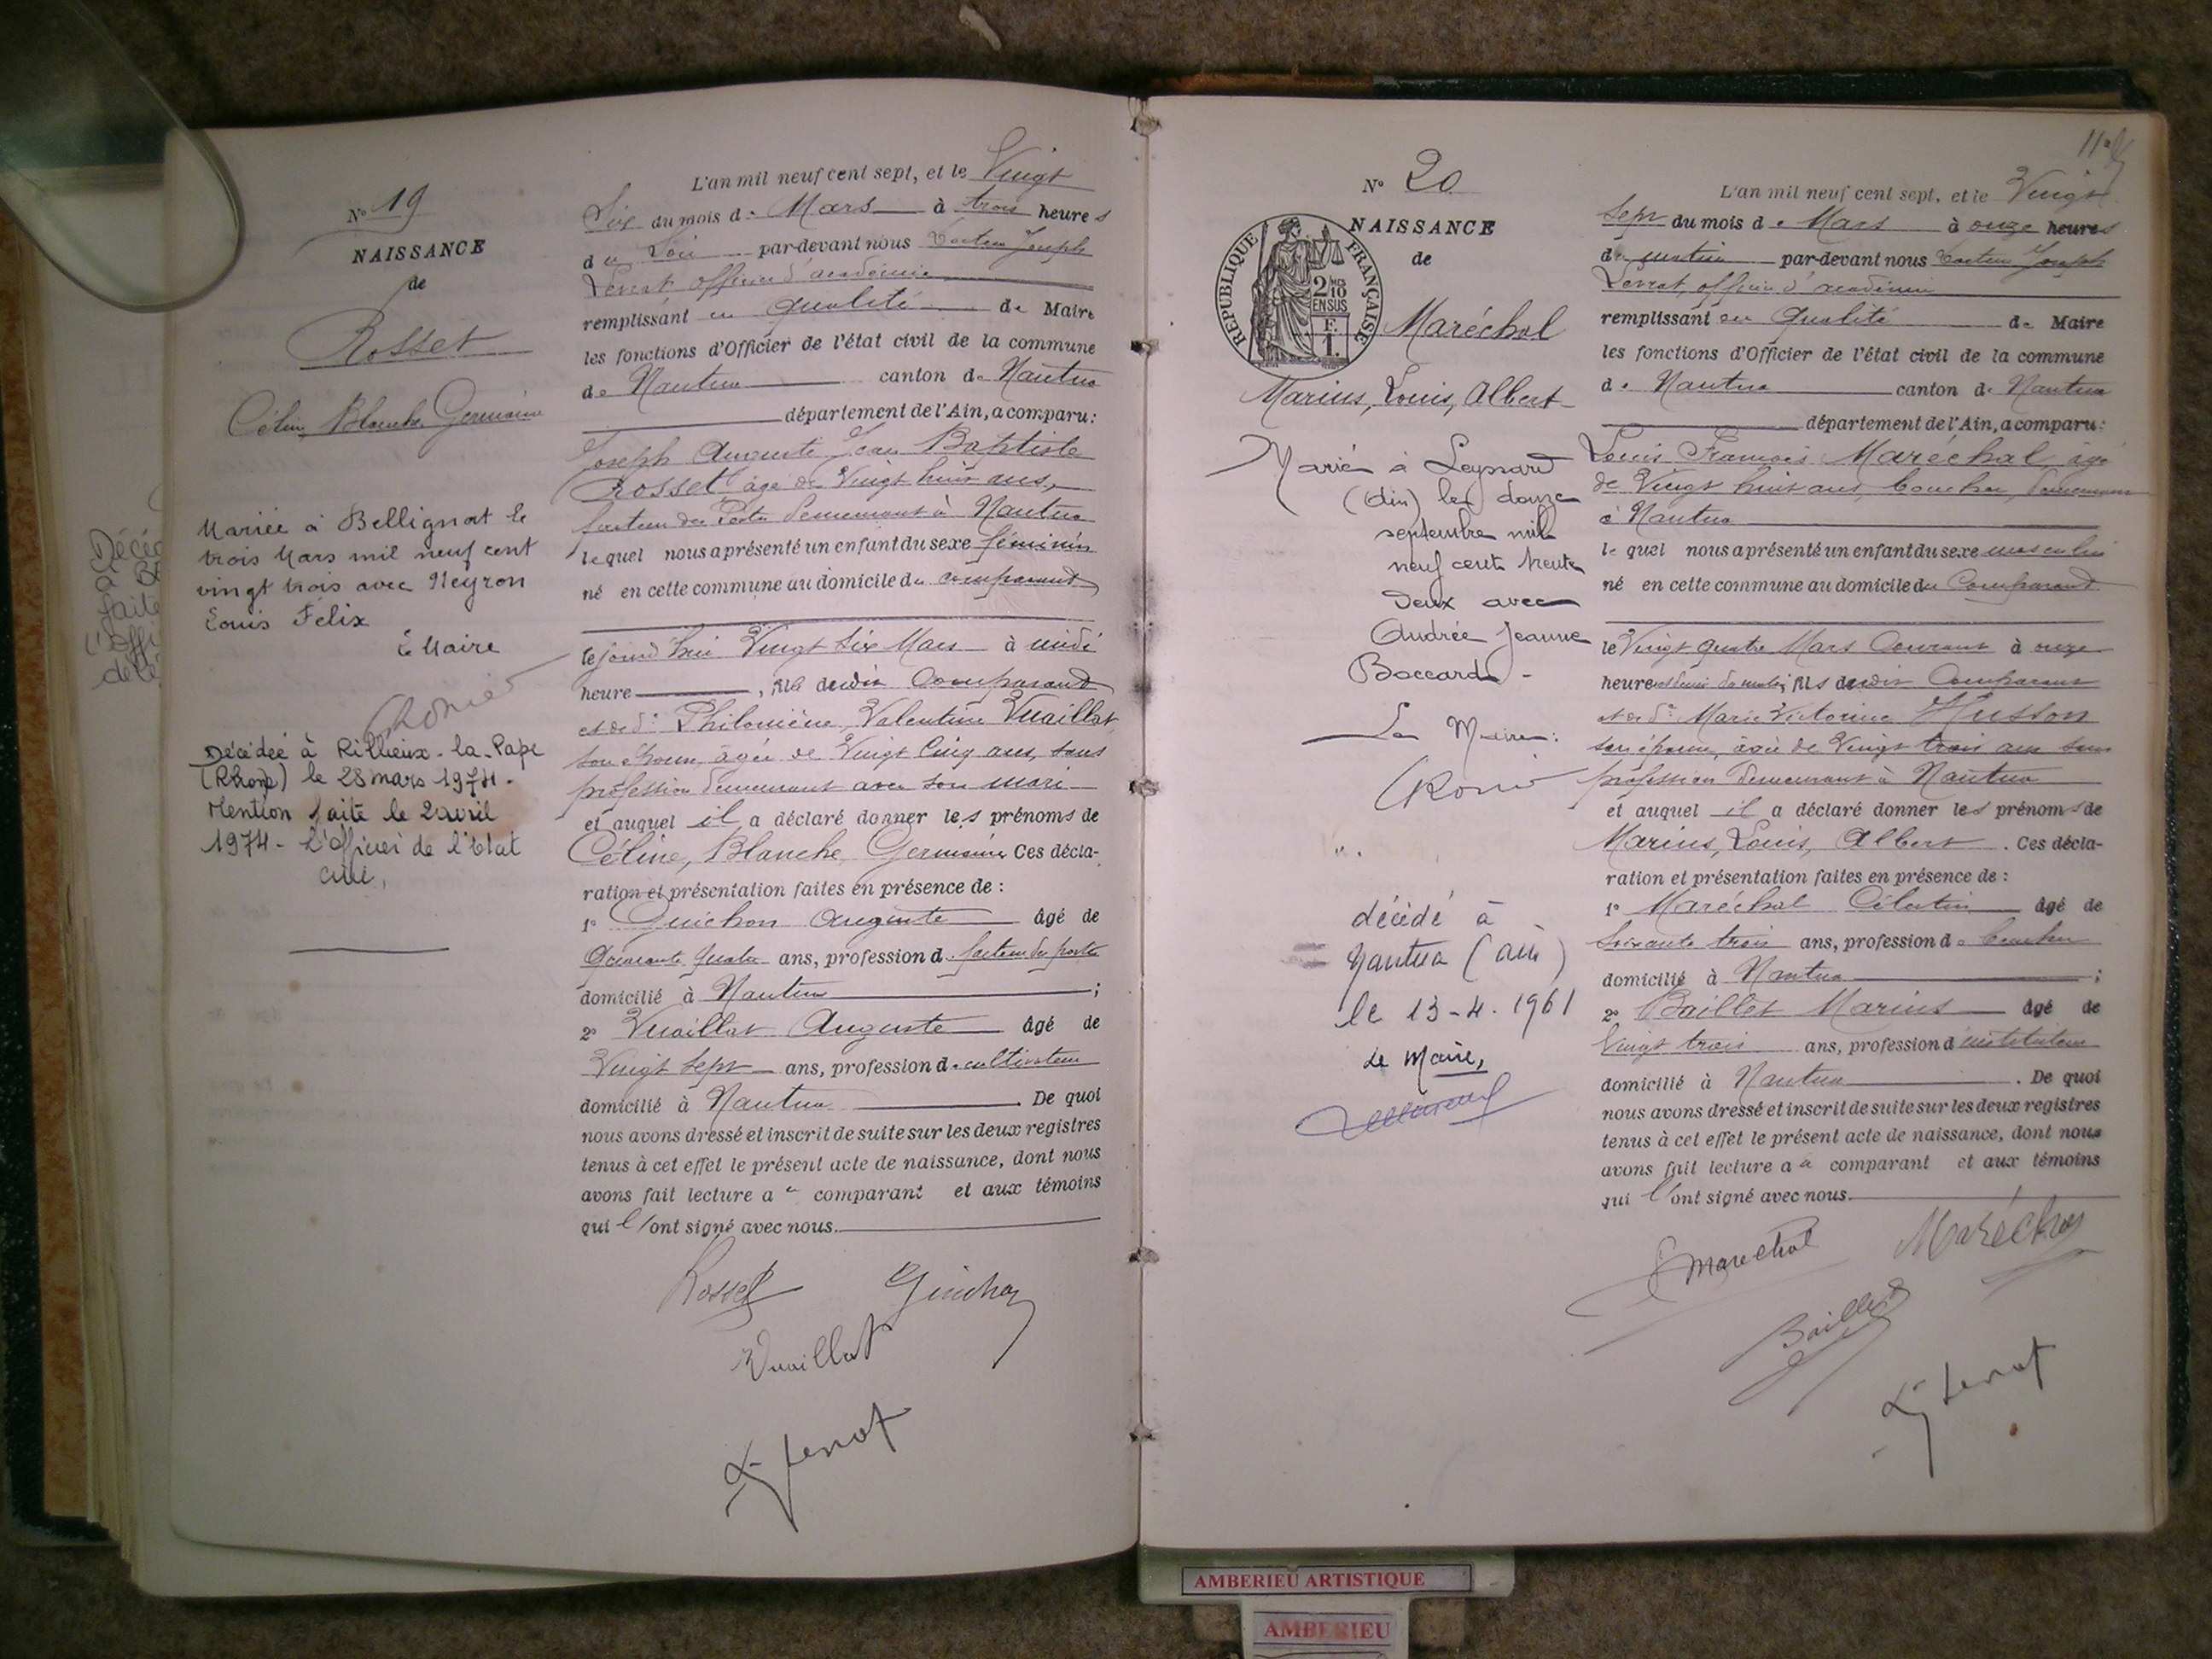 Nº 19
NAISSANCE
de
Rosset
Céline Blanche Germaine
Mariée à Bellignat le
trois Mars mil neuf cent
vingt trois avec Neyron
Louis Félix
Le Maire
Décédée à Rillieux-la-Pape
(Rhône) le 28 mars 1974.
Mention faite le 2 avril
1974 - L'officier de l'Etat
civil,
L'an mil neuf cent sept, et le Vingt
Six du mois de Mars à trois heures
du Soir par-devant nous Docteur Joseph
Levrat officier d'académie
remplissant en qualité de Maire
les fonctions d'Officier de l'état civil de la commune
de Nantua canton de Nantua
département de l'Ain, a comparu:
Joseph Auguste Jean Baptiste
Rosset âgé de Vingt huit ans,
facteur des Postes demeurant à Nantua
lequel nous a présenté un enfant du sexe féminin
né en cette commune au domicile du comparant
le jourd'hui Vingt Six Mars à midi
heure, fille dudit Comparant
et de de Philomène Valentine Vuaillat
son épouse âgée de Vingt Cinq ans, sans
profession demeurant avec son mari
et auquel il a déclaré donner les prénoms de
Céline, Blanche, Germaine Ces décla-
ration et présentation faites en présence de :
1º Guichon Auguste âgé de
Quarante quatre ans, profession de facteur des postes
domicilié à Nantua ;
2º Vuaillat Auguste âgé de
Vingt sept ans, profession de cultivateur
domicilié à Nantua . De quoi
nous avons dressé et inscrit de suite sur les deux registres
tenus à cet effet le présent acte de naissance, dont nous
avons fait lecture au comparant et aux témoins
qui l'ont signé avec nous.
Rosset Guichon
Vuaillat
Levrat
Nº 20
NAISSANCE
de
RÉPUBLIQUE FRANÇAISE
2/10
EN SUS
F.
1.
Maréchal
Marius, Louis, Albert
Marié à Leyssard
(Ain) le douze
septembre mil
neuf cent trente
deux avec
Andrée Jeanne
Boccard -
Le Maire :
décédé à
Nantua (ain)
le 13-4-1961
Le Maire,
L'an mil neuf cent sept, et le Vingt
Sept du mois de Mars à onze heures
du matin par-devant nous Docteur Joseph
Levrat, officier d'académie
remplissant en qualité de Maire
les fonctions d'Officier de l'état civil de la commune
de Nantua canton de Nantua
département de l'Ain, a comparu:
Louis François Maréchal âgé
de Vingt huit ans, boucher, demeurant
à Nantua
lequel nous a présenté un enfant du sexe masculin
né en cette commune au domicile du Comparant
le Vingt quatre Mars Courant à onze
heures et demie du matin, fils dudit Comparant
et de de Marie Victorine Husson
son épouse, âgée de Vingt trois ans sans
profession demeurant à Nantua
et auquel il a déclaré donner les prénoms de
Marius, Louis, Albert . Ces décla-
ration et présentation faites en présence de :
1º Maréchal Célestin âgé de
Soixante trois ans, profession de boucher
domicilié à Nantua ;
2º Baillet Marius âgé de
Vingt trois ans, profession d'instituteur
domicilié à Nantua . De quoi
nous avons dressé et inscrit de suite sur les deux registres
tenus à cet effet le présent acte de naissance, dont nous
avons fait lecture au comparant et aux témoins
qui l'ont signé avec nous.
Marechal Maréchal
Baillet
Levrat
AMBERIEU ARTISTIQUE
AMBERIEU